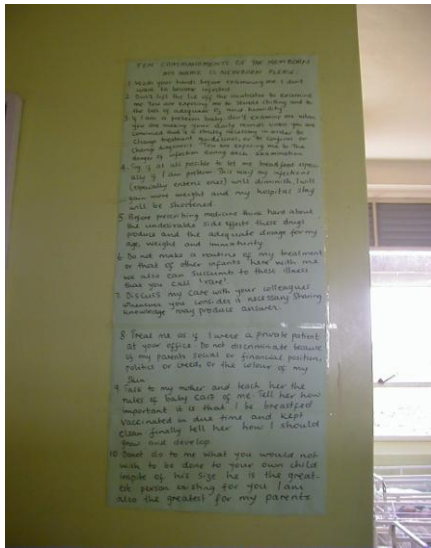 TEN COMMANDMENTS OF THE NEWBORN
MY NAME IS NEWBORN PLEASE:
1. Wash your hands before examining me I don't
want to become infected
2. Don't lift the lid off the incubator to examine
me. You are exposing me to severe chilling and to
the lack of adequate O2 and humidity
3. If I am a preterm baby, don't examine me when
you are making your daily rounds unless you are
convinced that is strictly necessary in order to
change treatment guidelines, or to confirm or
change diagnosis. You are exposing me to the
danger of infection during each examination
4. Try if at all possible to let me breastfeed especi-
ally if I am preterm This way my infections
(especially enteric ones) will diminish, I will
gain more weight and my hospital stay
will be shortened
5. Before prescribing medicine think hard about
the undesirable side effects these drugs
produce and the adequate dosage for my
age, weight and immaturity
6. Do not make a routine of my treatment
or that of other infants here with me
we also can succumb to these illness
that you call "rare"
7. Discuss my care with your colleagues
whenever you consider a necessary sharing
knowledge may produce answer.
8 Treat me as if I were a private patient
at your office. Do not discriminate because
of my parents social or financial position,
politics or creed, or the colour of my
skin
9 Talk to my mother and teach her the
rules of baby care of me. Tell her how
important it is that I be breastfed
vaccinated in due time and kept
clean finally tell her how I should
grow and develop
10 Donot do to me what you would not
wish to be done to your own child
inspite of his size he is the great-
est person existing for you I am
also the greatest for my parents